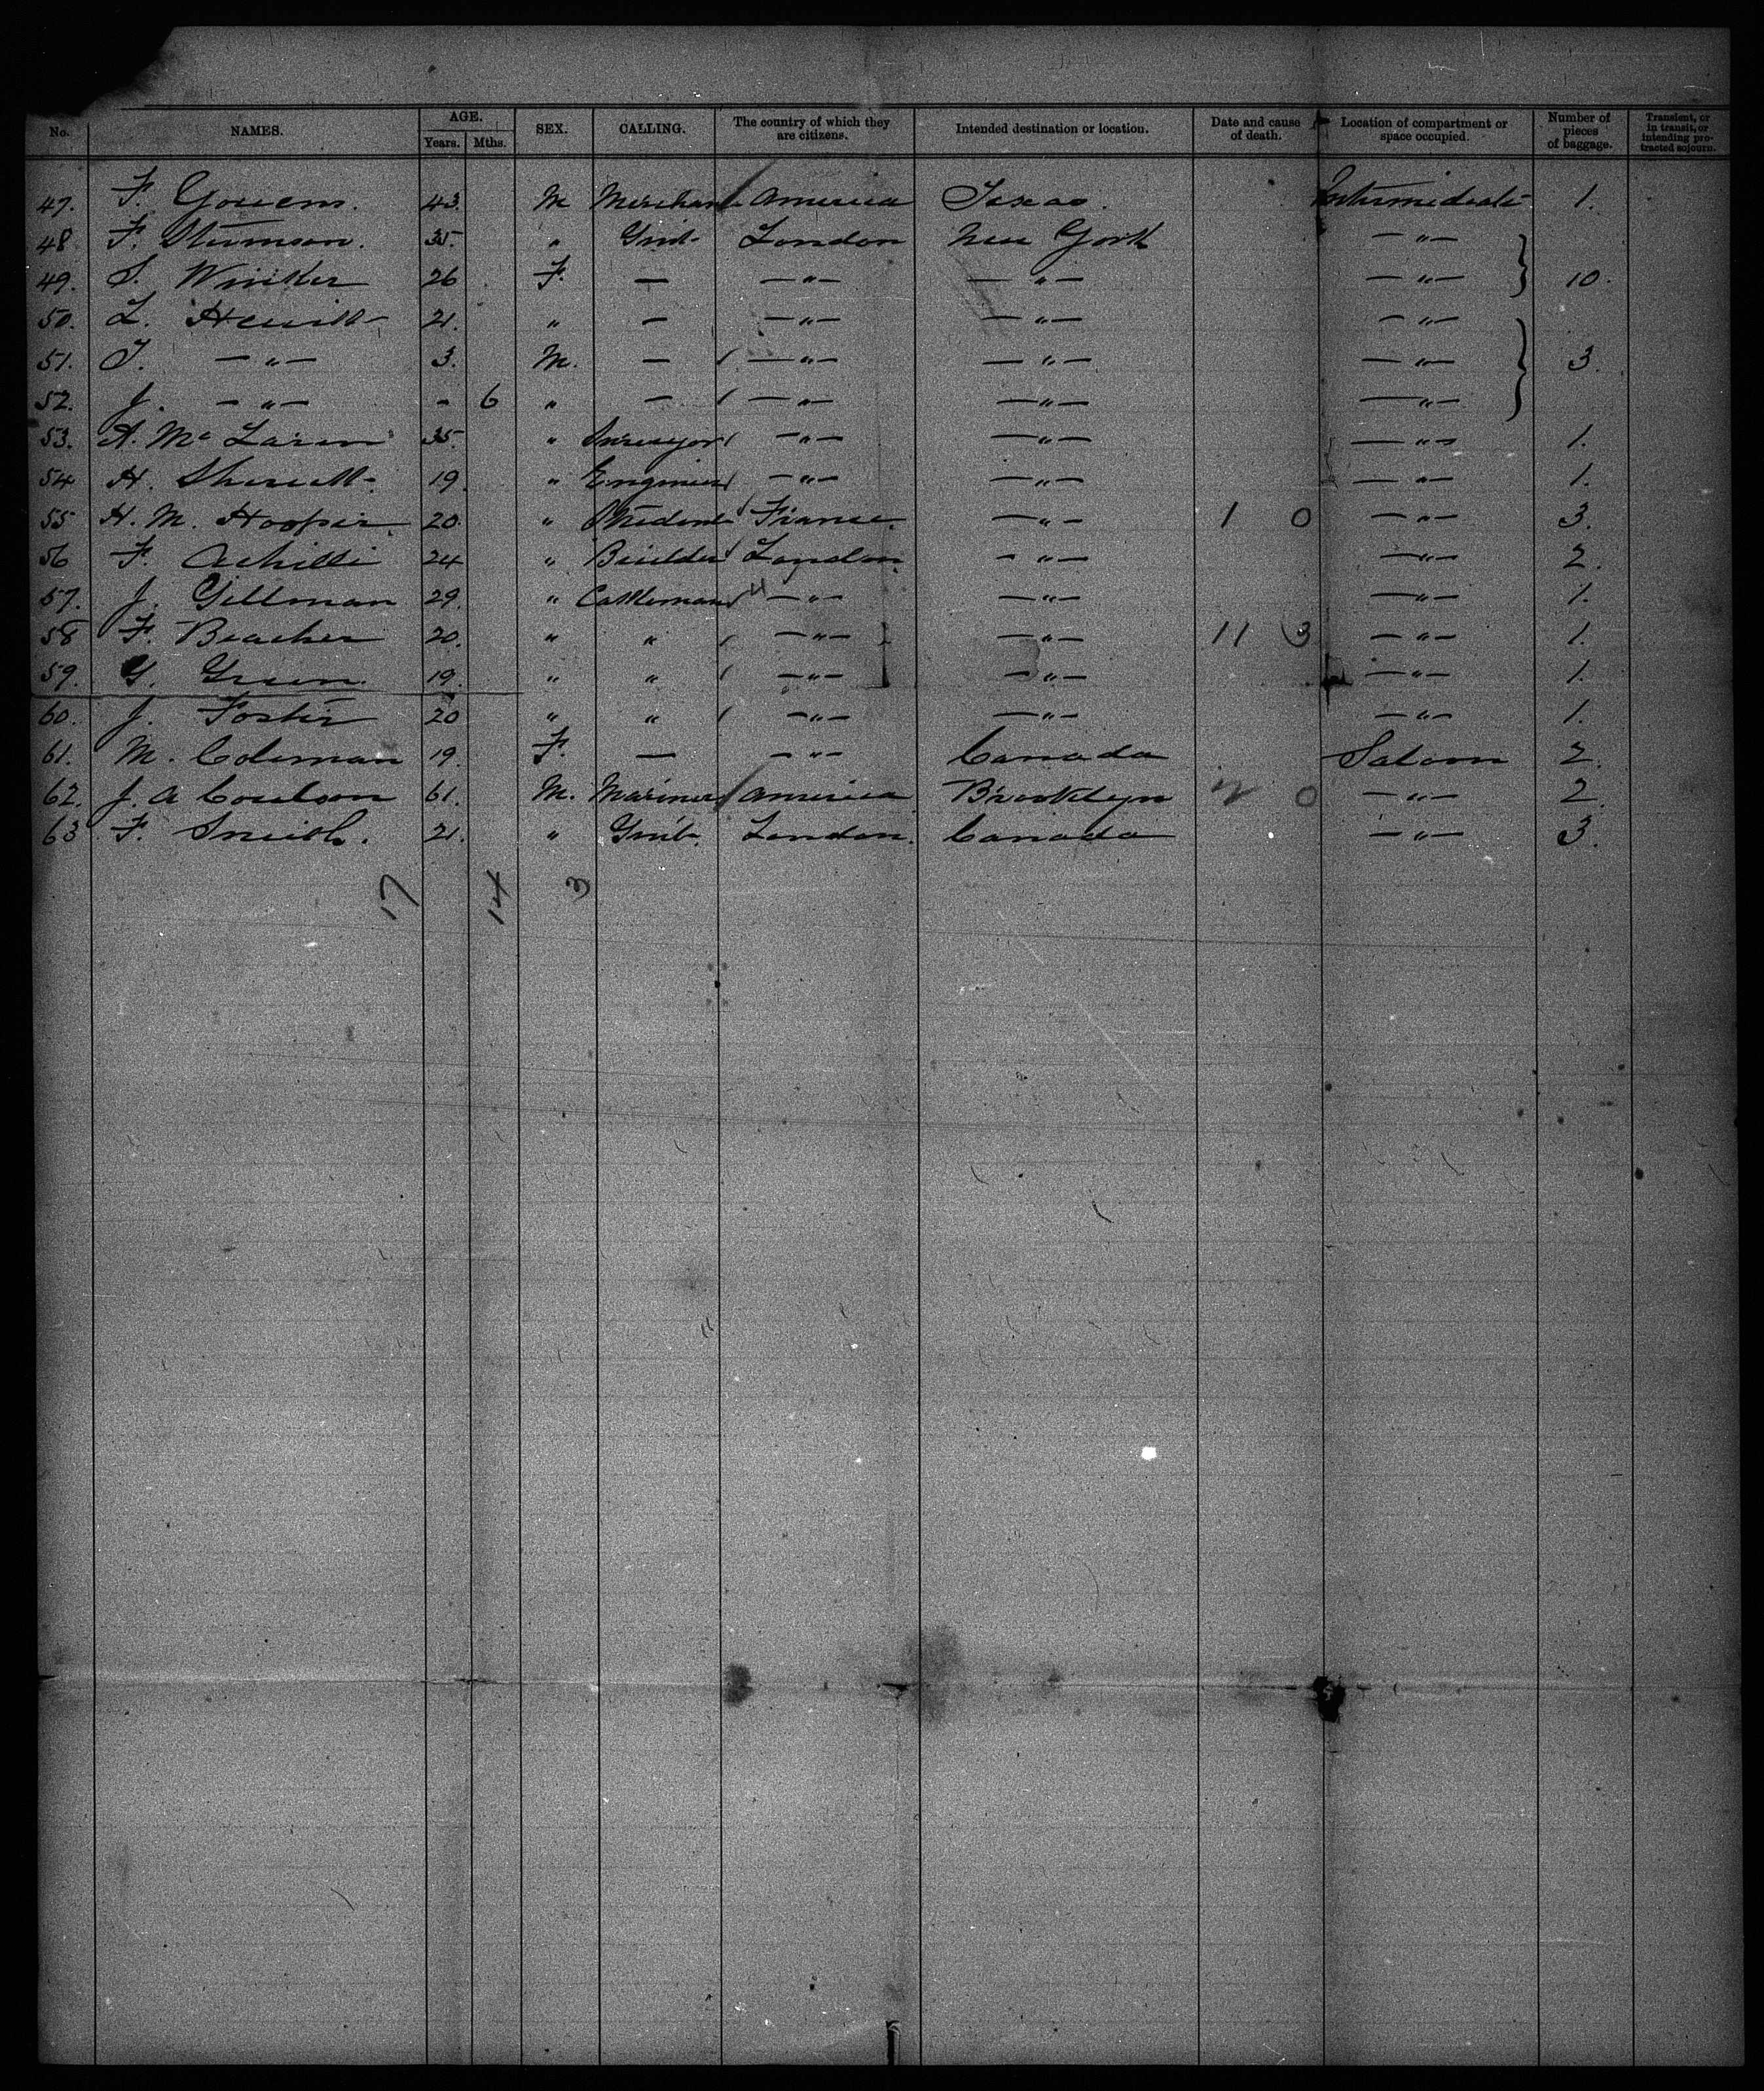 No. NAMES. AGE. Years. Mths. SEX. CALLING. The country of which they are citizens. Intended destination or location. Date and cause of death. Location of compartment or space occupied. Number of pieces of baggage. Transient, or in transit, or intending protracted sojourn.
47. F. 43. M Merchant America Texas. Intermediate 1.
48 F. Stimson. 35. " Gent London New York — " —
49. S. Winker 26 F. — — " — — " — — " — } 10.
50. L. Hewitt 21. " — — " — — " — — " —
51. T. — " — 3. M. — — " — — " — — " — } 3.
52. J. — " — - 6 " — — " — — " — — " —
53. A. Mc Laren 35. " Surveyor — " — — " — — " — 1.
54 H. 19. " Engineer — " — — " — — " — 1.
55 H. M. Hooper 20. " Student France. — " — 1 0 — " — 3.
56 F. Achilli 24 " Builder London. — " — — " — 2.
57. J. Gillman 29. " Cattleman — " — — " — — " — 1.
58 F. Beacher 20. " " — " — — " — 11 3 — " — 1.
59. G. Green. 19. " " — " — — " — — " — 1.
60. J. Foster 20 " " — " — — " — — " — 1.
61. M. Coleman 19. F. — — " — Canada Saloon 2.
62. J. A Coulson 61. M. Mariner America Brooklyn 2 0 — " — 2.
63 F. Smith. 21. " Gent. London. Canada — " — 3.
17 14 3